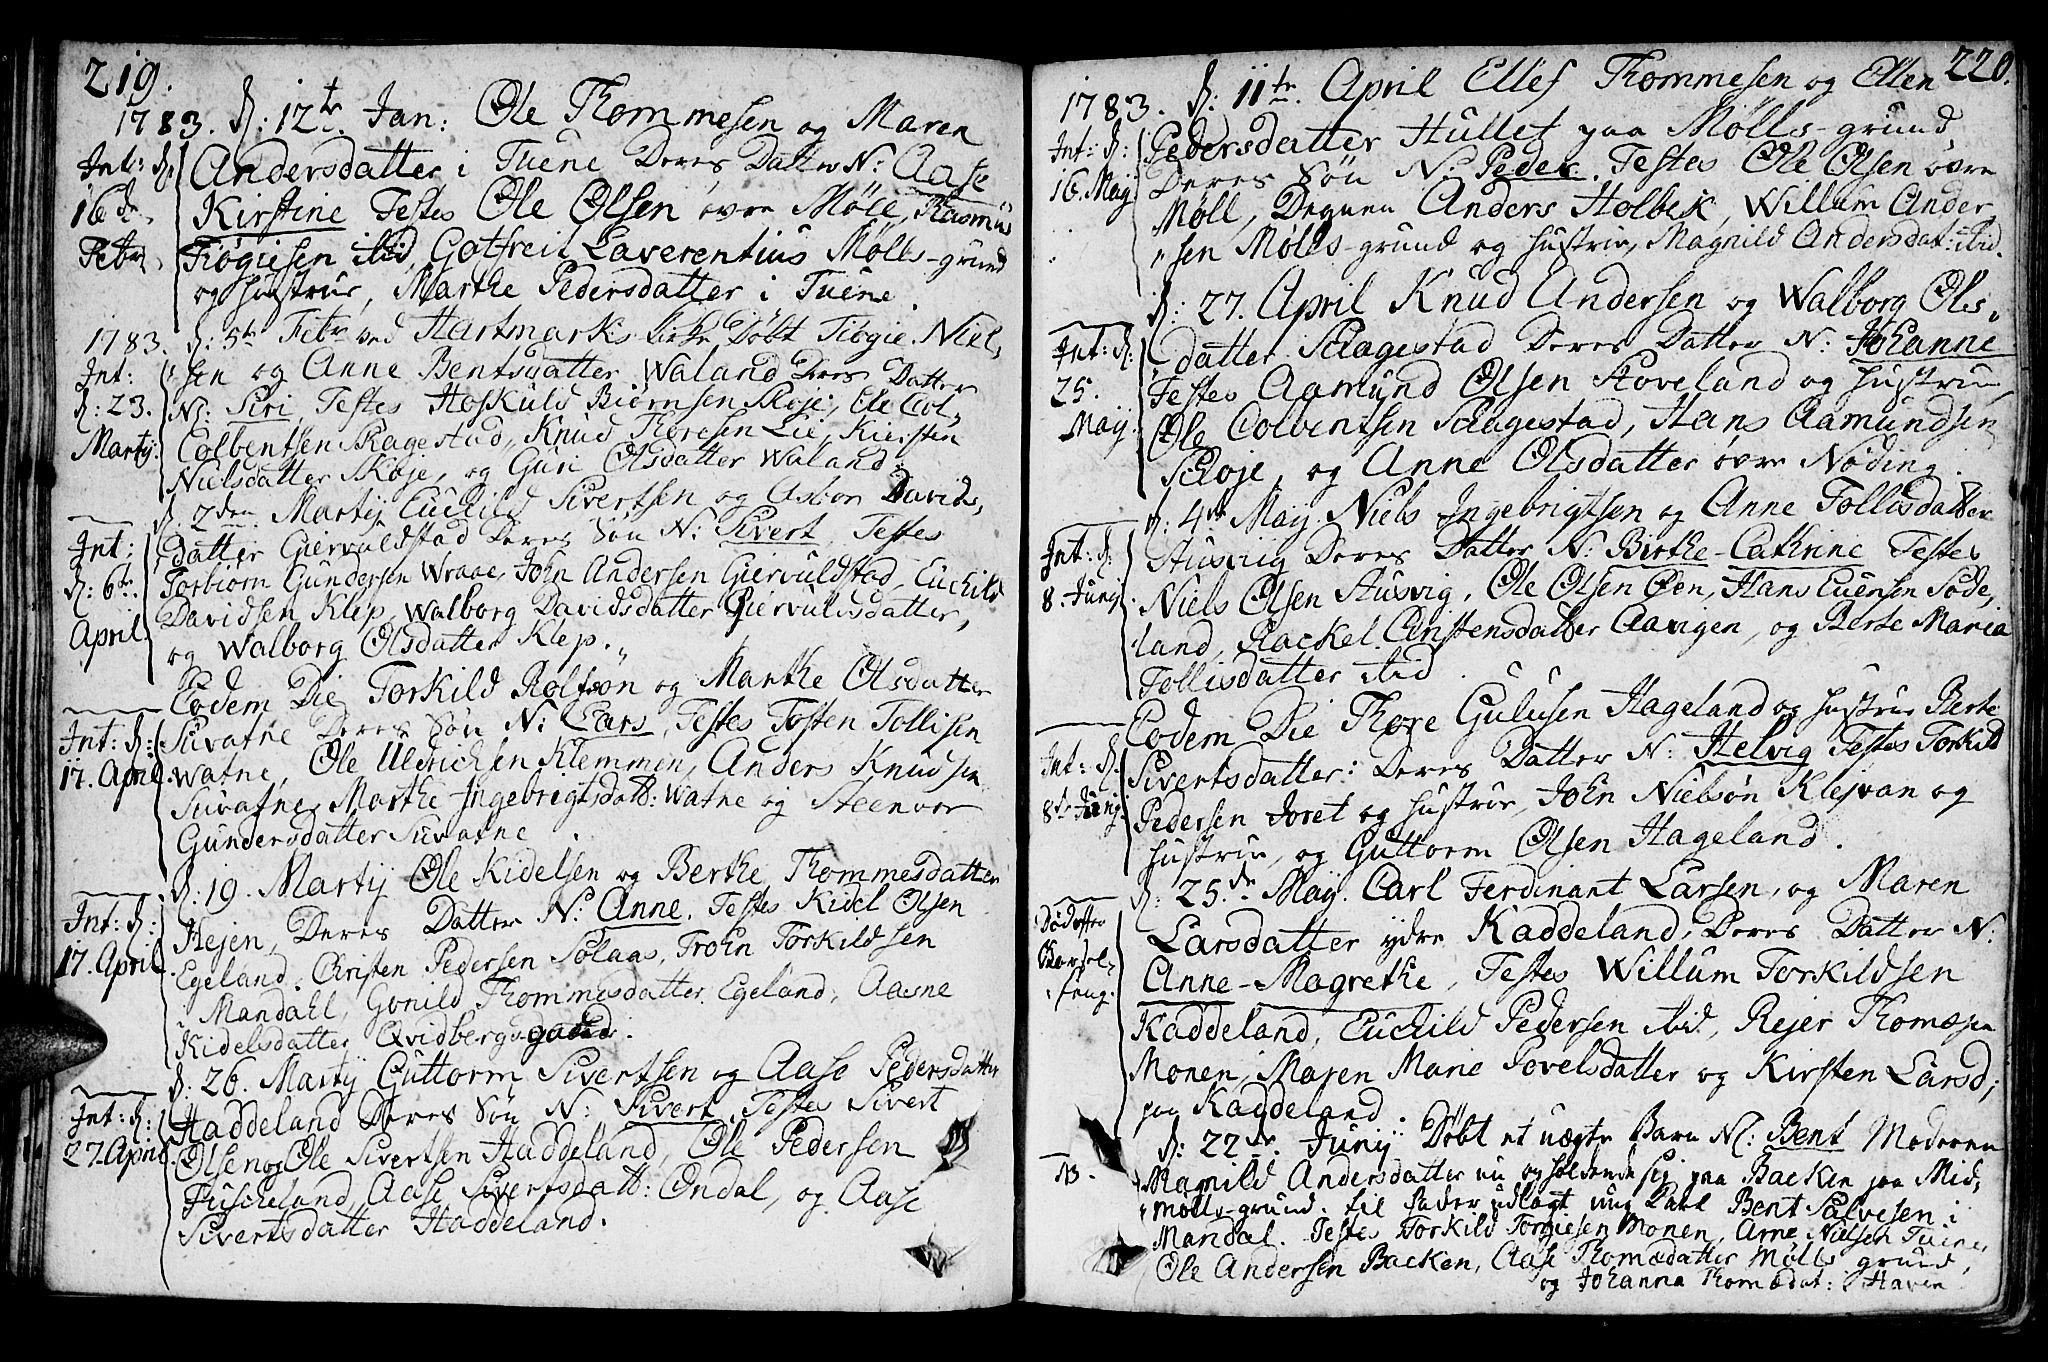 219.
1783. d: 12te. Jan: Ole Thommesen og Maren
Int: d: Andersdatter i Tuene Deres Datter N: Aase
16de Kirstine Testes Ole Olsen øvre Møll, Rasmus
Febr. Tiøgiesen ibid, Gotfreit Laverentius Mølls-grund
og Hustrue, Marthe Pedersdatter i Tuene.
1783. d: 5te Febr ved Hartmarks Kirke Døbt Tiøgie Niel„
Int: „sen og Anne Bentsdatter Waland Deres Datter
d: 23. N: Siri, Testes Hoskuld Biørnsen Skoje, Ole Col„
Martij: Colbentsen Skagestad, Knud Thoresen Lie, Kiersten
Nielsdatter Skoje, og Guri Olsdatter Waland.
d. 2den Martij Euchild Sivertsen og Asbor Davids„
Int: datter Giervuldstad Deres Søn N: Sivert, Testes
d: 6te. Torbiørn Gundersen Wraae, John Andersen Giervuldstad, Euchild
Davidsen Klep, Walborg Davidsdatter Giervulsdatter,
April og Walborg Olsdatter Klep.„
Eodem Die Torkild Rolfson og Marthe Olsdatter
Int: d: Suvatne Deres Søn N: Lars, Testes Tosten Tollisen
17. April Watne, Ole Uldrichsen Klemmen, Anders Knudsen
Suvatne, Marthe Ingebrigtsdatt: Watne og Steenvor
Gundersdatter Suvatne.
d: 19. Martij Ole Kidelsen og Berthe Thommesdatter
Int: d: Hejen, Deres Datter N: Anne. Testes Kidel Olsen
17. April. Egeland, Christen Pedersen Solaas, Trohn Torkildsen
Mandahl, Gonild Thommesdatter Egeland, Aasne
Kidelsdatter Qvidbergsgaded.
d: 26. Martij Guttorm Sivertsen og Aase Pedersdatter
Int: d: Haddeland Deres Søn N: Sivert, Testes Sivert
27. April. Olsen og Ole Sivertsen Haddeland, Ole Pedersen
Fuscheland, Aase Sivertsdatt: Øndal, og Aase
Sivertsdatter Haddeland.
220.
1783. d: 11te. April Ellef Thommesen og Ellen
Int: d: Pedersdatter Hullet paa Mølls-grund
16. Maij Deres Søn N: Peder. Testes Ole Olsen øvre
Møll, Degnen Anders Holbek, Willum Ander„
„sen Mølls-grund og Hustrue, Magnild Andersdat: ibid.
d: 27. April Knud Andersen og Walborg Ols„
Int: d: „datter Skagestad Deres Datter N: Johanne
25. Testes Aamund Olsen Stoveland og Hustrue,
Maij. Ole Colbentsen Skagestad, Hans Aamundsen
Skoje, og Anne Olsdatter øvre Nøding.
d: 4de Maij. Niels Ingebrigtsen og Anne Tollisdatter
Int: d: Husvig Deres Datter N: Birthe-Cathrine Testes
8. Junij. Niels Olsen Husvig, Ole Olsen Øen, Hans Euensen Søde„
„land, Rackel Christensdatter Aavigen, og Berte Maria
Tollisdatter ibid.
Eodem Die Thore Gulusen Hageland og Hustrue Berte
Int: d: Sivertsdatter: Deres Datter N: Helvig Testes Torkild
8te Junij Pedersen Joret og Hustrue, John Nielsøn Klejvan og
Hustrue, og Guttorm Olsen Hageland.
d: 25de. Maij. Carl Ferdinant Larsen, og Maren
Døde efter Larsdatter ydre Kaddeland, Deres Datter N:
Barsel- Anne-Magrethe, Testes Willum Torkildsen
seng. Kaddeland, Euchild Pedersen ibid, Rejer Thomæsen
Monen, Maren Marie Povelsdatter og Kirsten Larsd;
paa Kaddeland.
d: 22de. Junij Døbt et uægte Barn N: Bent Moderen
NB. Mamild Andersdatter nu opholdende sig paa Backen paa Mid„
„mølls-grund, til Fader udlagt ung Karl Bent Salvesen i
Mandal. Testes Torkild Torgiesen Monen, Arne Nielsen Tuene,
Ole Andersen Backen, Aase Thomædatter Mølls grund,
og Johanna Thomædat: Haven